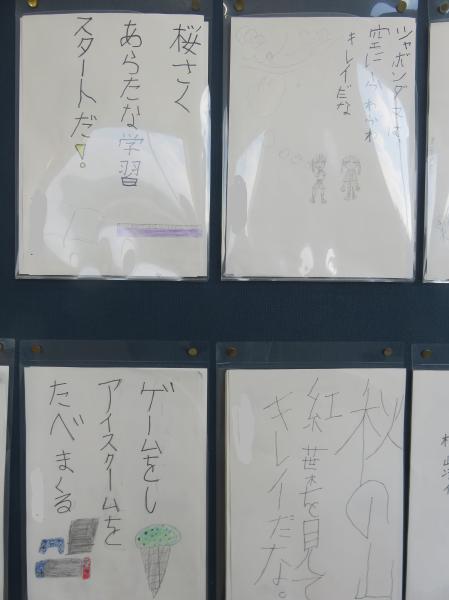 桜さく
あらたな学習
スタートだ!
シャボンダマは
キレイだな
ゲームをし
アイスクームを
たべまくる
秋の山
紅葉を見て
キレイだな。